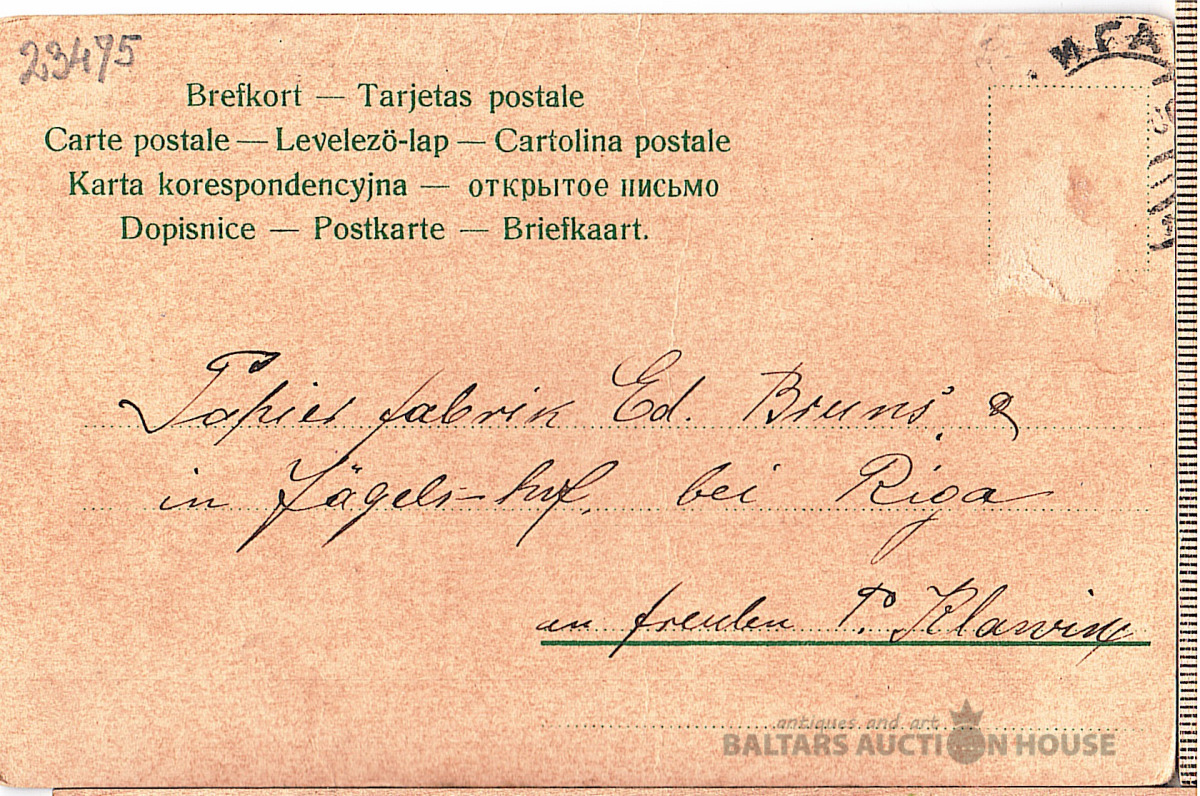 23475
ИГА
Brefkort — Tarjetas postale
Carte postale — Levelezö-lap — Cartolina postale
Karta korespondencyjna — открытое письмо
Dopisnice — Postkarte — Briefkaart.
Papier fabrik Ed. Bruns &
in Jägels-hof, bei Riga
an freulen P. Klawing
antiques and art
BALTARS AUCTION HOUSE